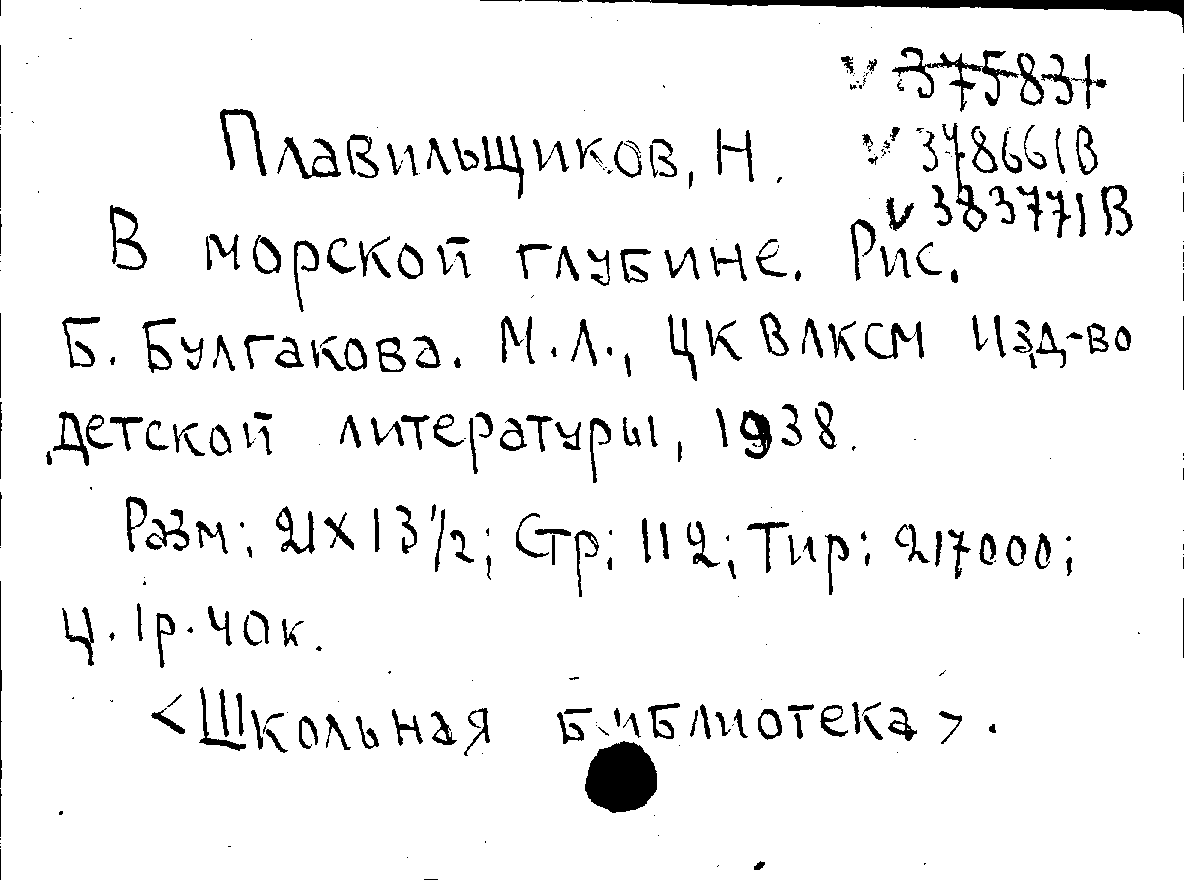 v 375831
Плавильщиков, Н.
v 378661В
v 383771В
В морской глубине. Рис.
Б. Булгакова. М.Л., ЦК ВЛКСМ Изд-во
детской литературы, 1938.
Разм: 21X13 1/2; Стр: 112; Тир: 217000;
Ц. 1р. 40к.
<Школьная библиотека>.